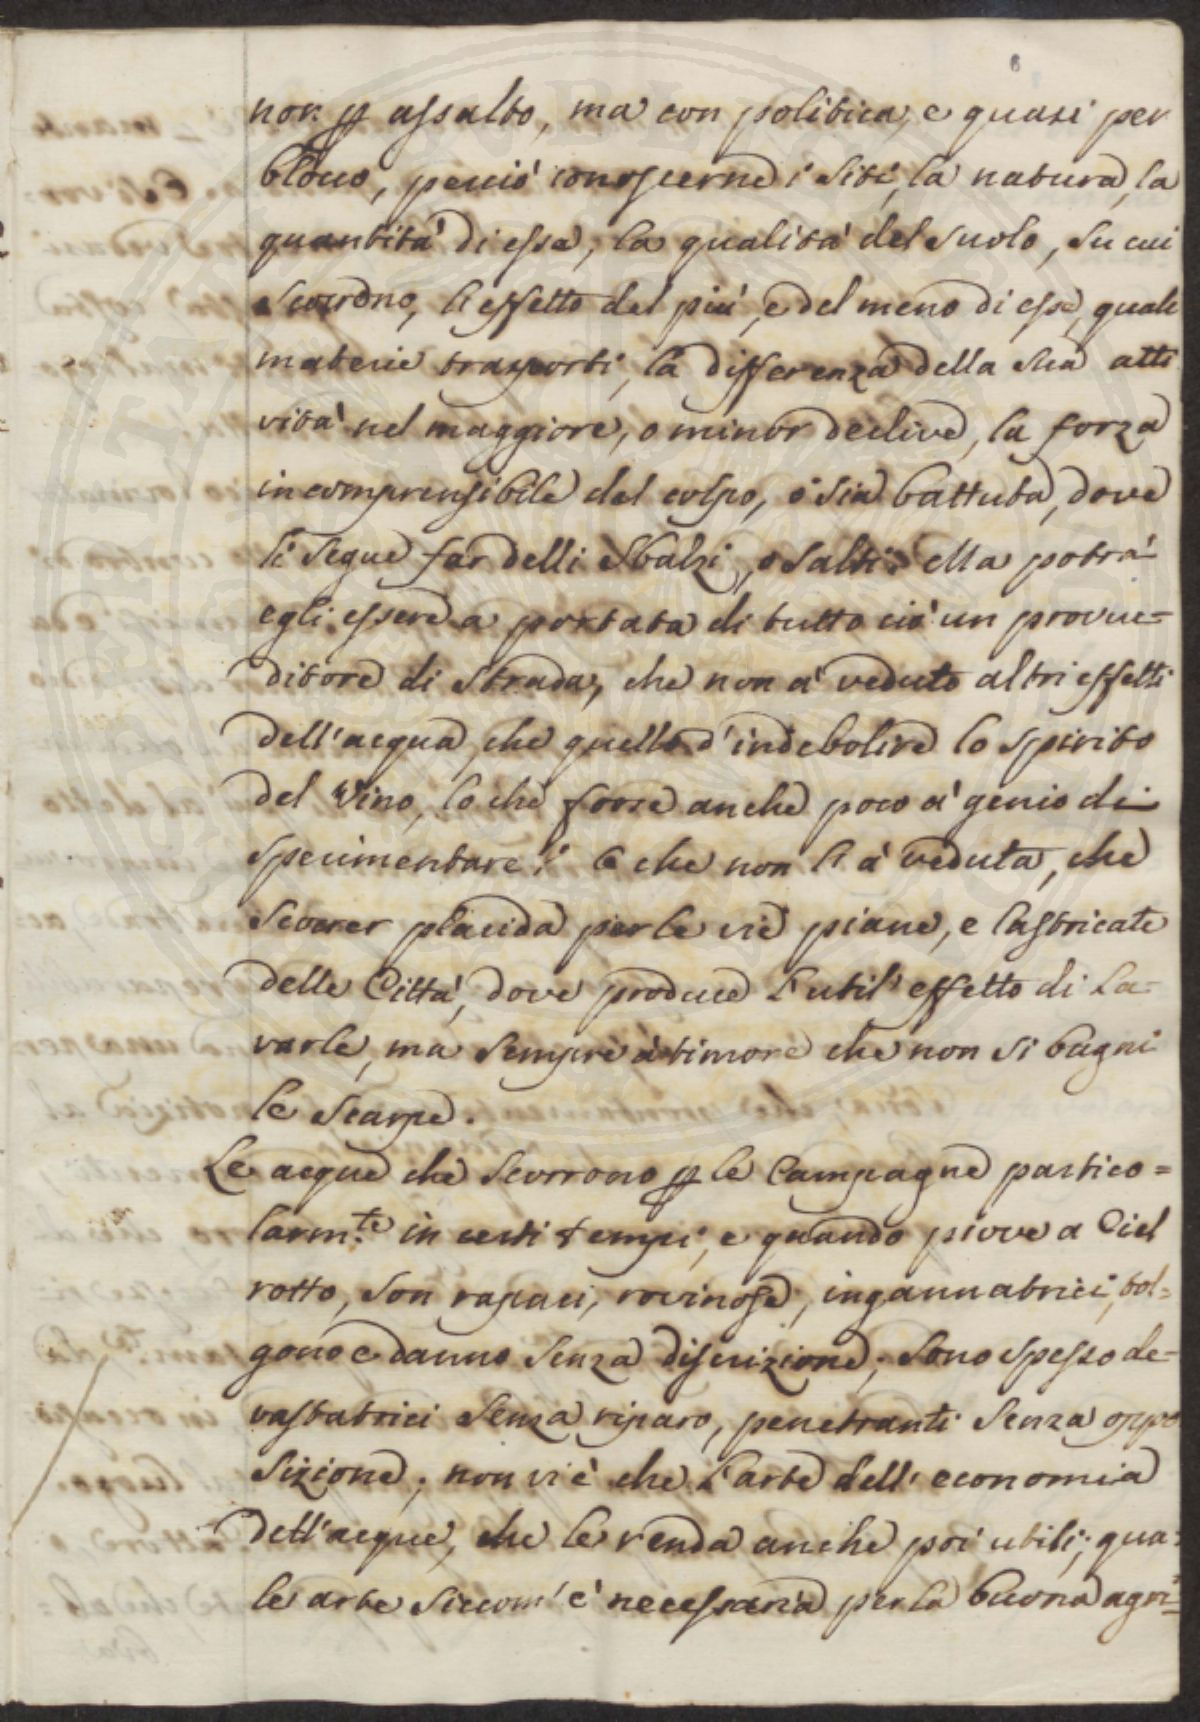 non p assalto, ma con politica, e quasi per
bloccо, perciò conoscerne i siti, la natura, la
quantità di esse, la qualità del suolo, su cui
scorrono, li effetto del più, e del meno di esse, quali
materie trasporti, la differenza della sua atti
vità nel maggiore, o minor declive, la forza
incomprensibile del colpo, o sia battuta, dove
li segue far delli sbalzi, o salti: Ma potrà
egli essere a portata di tutto ciò un provve=
ditore di strada, che non à veduto altri effetti
dell'acqua, che quello d'indebolire lo spirito
del Vino, lo che forse anche poco à genio di
sperimentare: e che non li à veduta, che
scorrer placida per le vie piane, e lastricate
delle Città, dove produce l'util' effetto di La=
varle, ma sempre à timore che non si bagni
le scarpe.
Le acque che scorrono p le Campagne partico=
larm.te in certi tempi, e quando piove a Ciel
rotto, son rapaci, rovinose, ingannatrici, tol=
gono e danno senza discrizione; sono spesso de=
vastatrici senza riparo, penetranti senza oppo
sizione; non vi è che l'arte dell' economia
dell'acque, che le renda anche poi utili; qua=
le arte siccom' è necessaria per la buona agri=